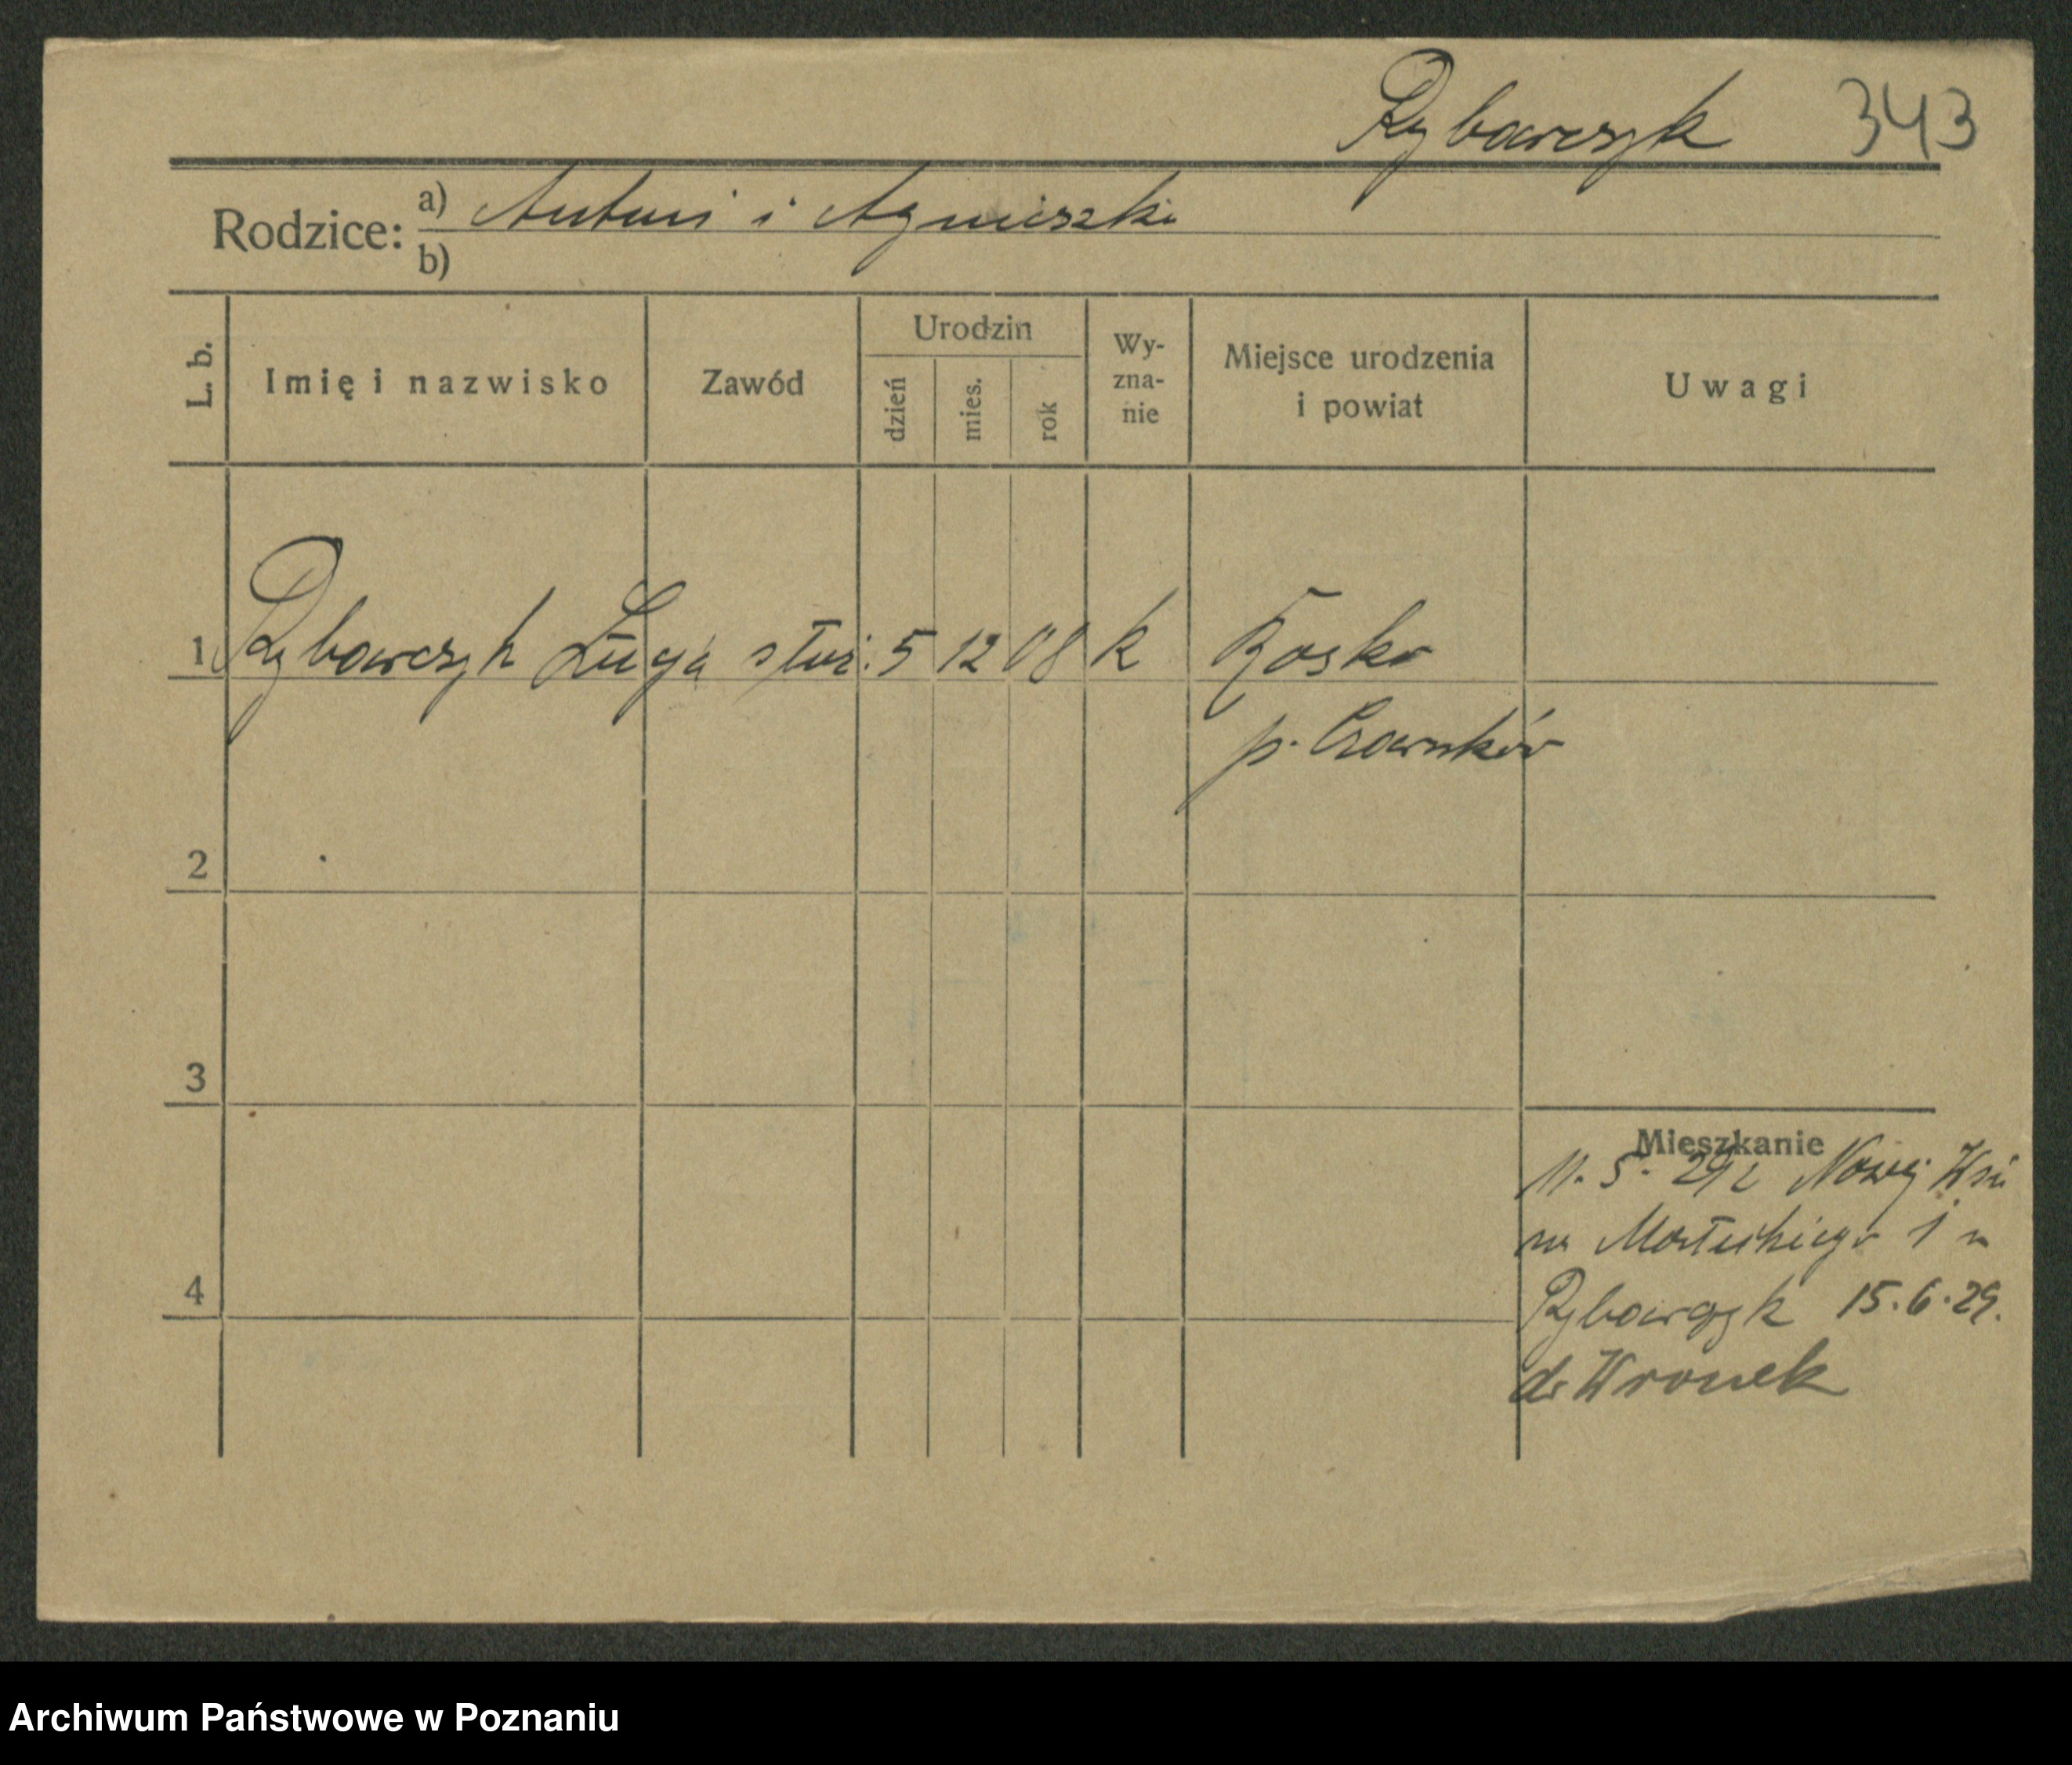 Rybarczyk 343
Rodzice: a) Antoni i Agnieszka
b)
L. b. Imię i nazwisko Zawód Urodzin dzień mies. rok Wy-zna-nie Miejsce urodzenia i powiat Uwagi
1 Rybarczyk służ. 5 12 08 k Rosko
p. Czarnków
2
3
Mieszkanie
11. 5. 29 z Nowej Wsi
na 1 n
4
Rybarczyk 15. 6. 29.
do Wronek
Archiwum Państwowe w Poznaniu